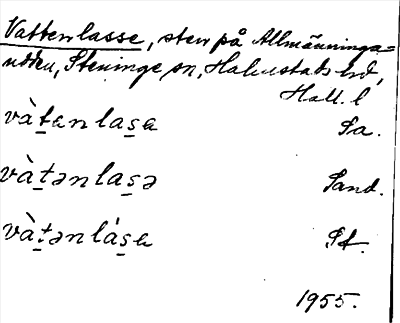 Vattenlasse, sten på Allmänninga=
udden, Steninge sn, Halmstads hd,
Hall. l
vàt̠ənlas̠a Sa.
vàt̠ənlas̠ə Sand.
vàt̠ənlás̠a St.
1955.